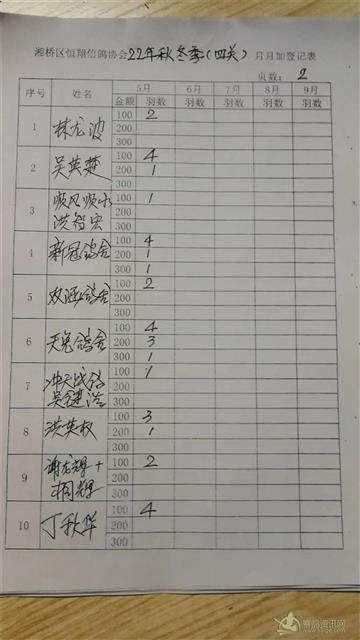 湘桥区恒翔信鸽协会22年秋冬季(四关)月月加登记表
页数: 2
序号 姓名 5月 6月 7月 8月 9月
金额 羽数 羽数 羽数 羽数 羽数
1 林龙波 100 2
200
300
2 吴英楚 100 4
200 1
300
3 顺风顺水 100 1
洪裕宏 200
300
4 新冠鸽舍 100 4
200 1
300 1
5 双涵鸽舍 100 2
200
300
6 天兔鸽舍 100 4
200 3
300 1
7 冲天战鸽 100 1
吴健浩 200
300
8 洪英权 100 3
200 1
300
9 谢龙辉+ 100 2
桐辉 200
300
10 丁秋华 100 4
200
300
赛鸽资讯网